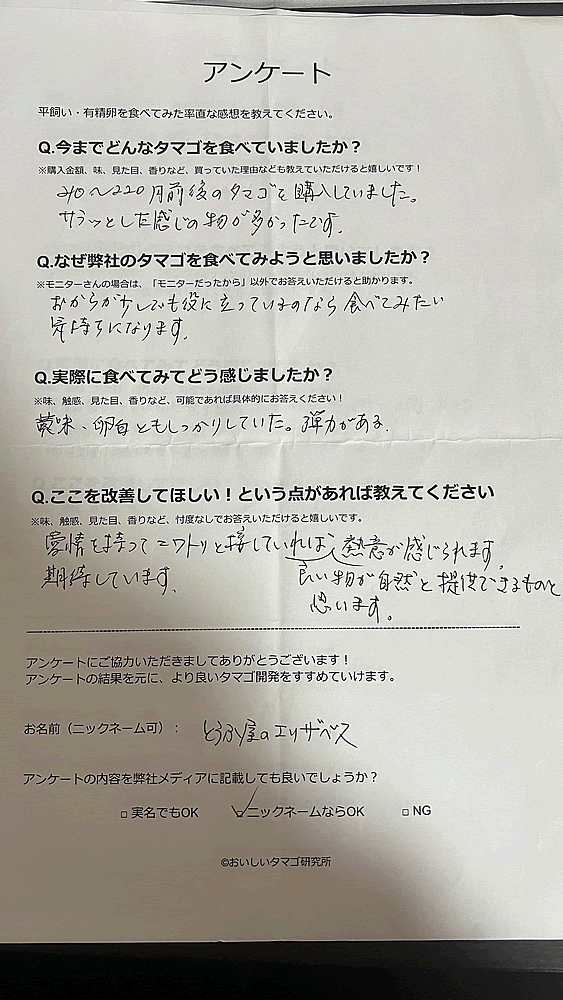 アンケート
平飼い・有精卵を食べてみた率直な感想を教えてください。
Q.今までどんなタマゴを食べていましたか？
※購入金額、味、見た目、香りなど、買っていた理由なども教えていただけると嬉しいです！
210〜220円前後のタマゴを購入していました。
サラッとした感じの物が多かったです。
Q.なぜ弊社のタマゴを食べてみようと思いましたか？
※モニターさんの場合は、「モニターだったから」以外でお答えいただけると助かります。
おからが少しでも役に立っているのなら食べてみたい
気持ちになります。
Q.実際に食べてみてどう感じましたか？
※味、触感、見た目、香りなど、可能であれば具体的にお答えください！
黄味、卵白ともしっかりしていた。弾力がある。
Q.ここを改善してほしい！という点があれば教えてください
※味、触感、見た目、香りなど、忖度なしでお答えいただけると嬉しいです。
愛情を持ってニワトリと接していれば、熱意が感じられます。
期待しています。
良い物が自然と提供できるものと
思います。
アンケートにご協力いただきましてありがとうございます！
アンケートの結果を元に、より良いタマゴ開発をすすめていけます。
お名前（ニックネーム可）： とうふ屋のエリザベス
アンケートの内容を弊社メディアに記載しても良いでしょうか？
□ 実名でもOK ☑ ニックネームならOK □ NG
©おいしいタマゴ研究所